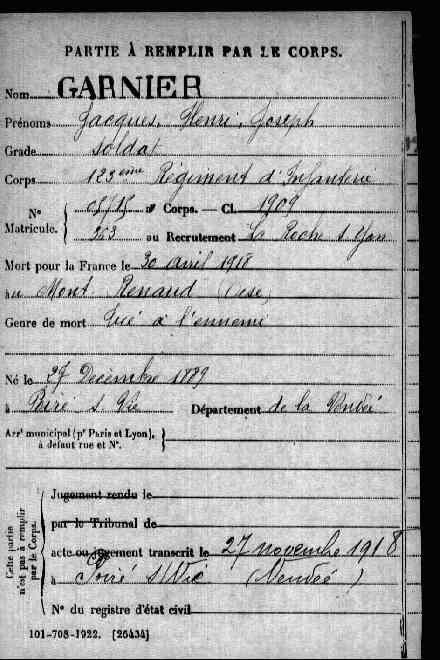 PARTIE À REMPLIR PAR LE CORPS.
Nom GARNIER
Prénoms Jacques, Henri, Joseph
Grade soldat
Corps 123ème Régiment d'Infanterie
N° Matricule. { au Corps. — Cl. 1909
263 au Recrutement La Roche s Yon
Mort pour la France le 30 avril 1918
au Mont Renaud (Oise)
Genre de mort Tué à l'ennemi
Né le 27 Décembre 1889
à Poiré s. Vie Département de la Vendée
Arrt municipal (pr Paris et Lyon), à défaut rue et N°. }
Cette partie n'est pas à remplir par le Corps. {
Jugement rendu le
par le Tribunal de
acte ou jugement transcrit le 27 novembre 1918
à Poiré s/Vie (Vendée)
N° du registre d'état civil
101-708-1922. [26434]